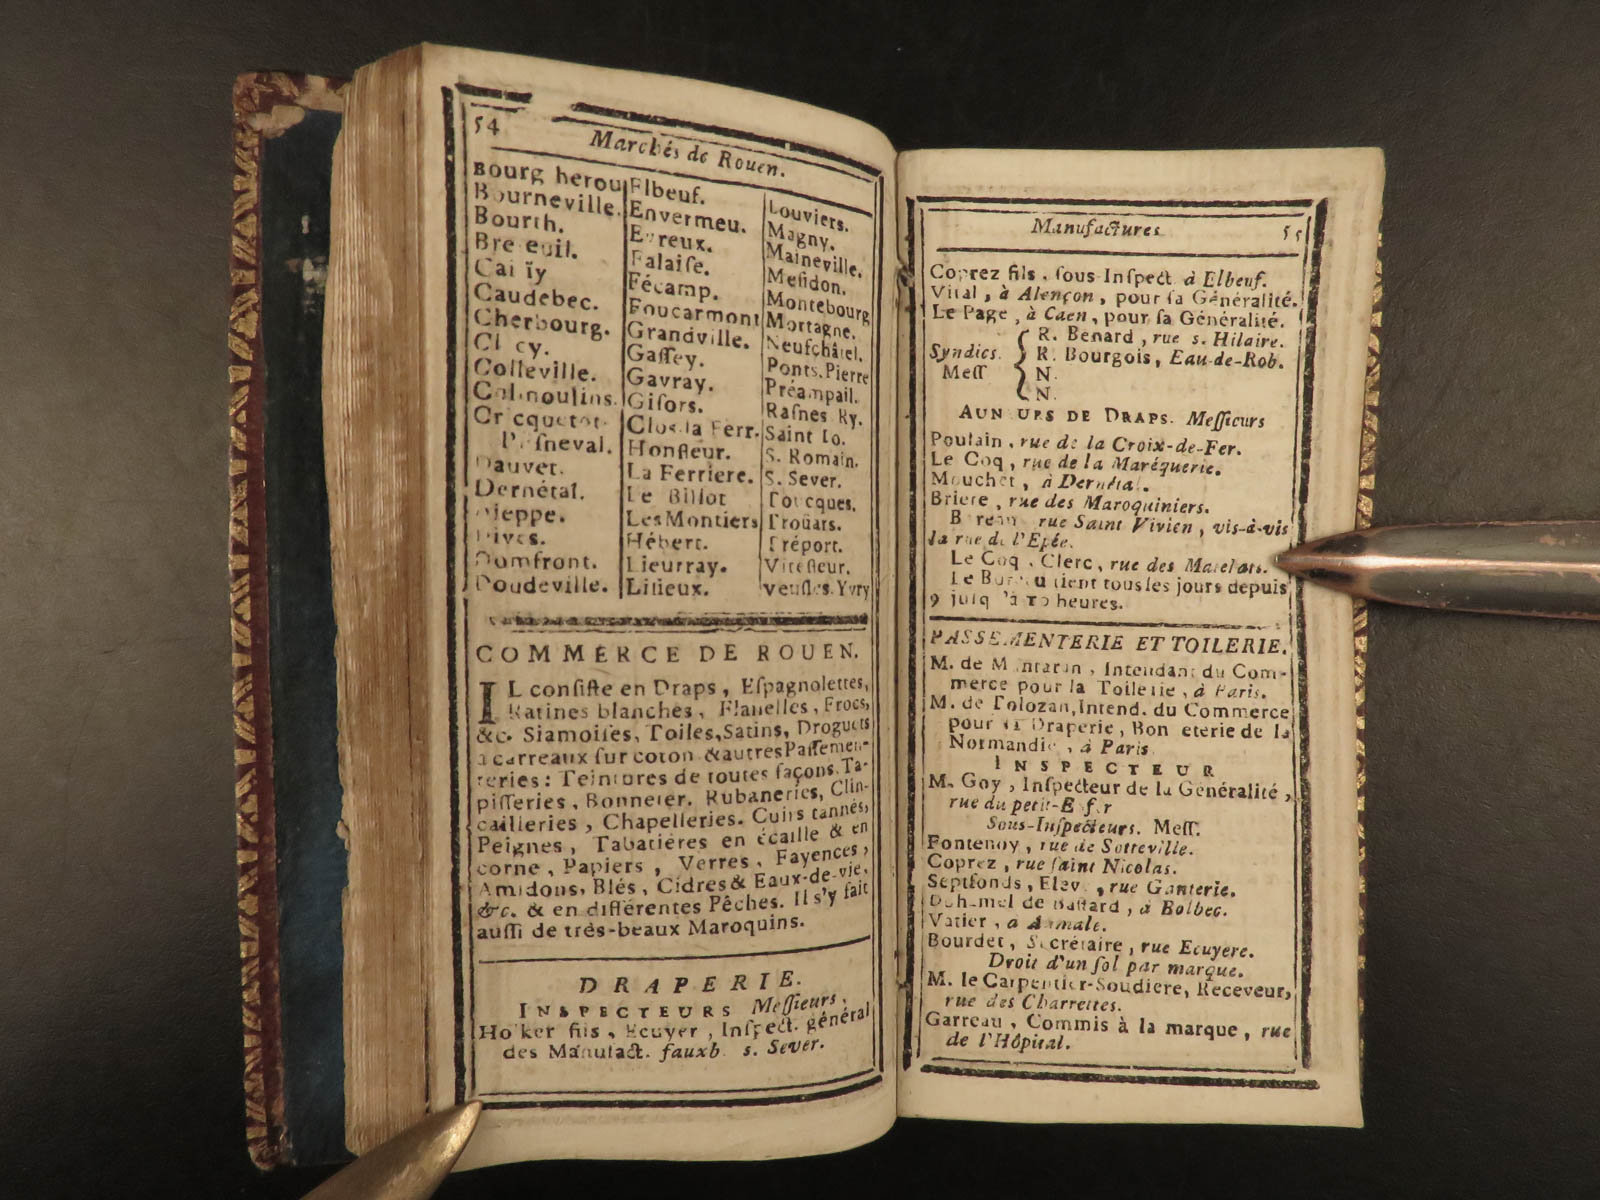 54
Marchés de Rouen.
Bourg herou
Bourneville.
Bourth.
Bre euil.
Caudebec.
Cherbourg.
Colleville.
Col moulins.
Cr cquetot
Dauvet.
Dernétal.
Dieppe.
Dives.
Domfront.
Doudeville.
Elbeuf.
Envermeu.
Evreux.
Falaiſe.
Fécamp.
Foucarmont
Grandville.
Gaſſey.
Gavray.
Giſors.
Clos-la Ferr.
Honfleur.
La Ferriere.
Le Billot
Les Montiers
Hébert.
Lieurray.
Liſieux.
Louviers.
Magny.
Maineville.
Meſidon.
Montebourg
Mortagne.
Neufchâtel.
Ponts. Pierre
Préampail.
Raſnes Ry.
Saint Lo.
S. Romain.
S. Sever.
Toucques.
Troüars.
Tréport.
Viteſleur.
veuſles. Yvry
COMMERCE DE ROUEN.
IL conſiſte en Draps, Eſpagnolettes,
Ratines blanches, Flanelles, Frocs,
&c. Siamoiſes, Toiles, Satins, Droguets
à carreaux ſur coton & autres Paſſemen-
teries : Teintures de toutes façons. Ta-
piſſeries, Bonneter. Rubaneries, Clin-
cailleries, Chapelleries. Cuirs tannés,
Peignes, Tabatières en écaille & en
corne, Papiers, Verres, Fayences,
Amidons, Blés, Cidres & Eaux-de-vie,
&c. & en différentes Pêches. Il s'y fait
auſſi de très-beaux Maroquins.
DRAPERIE.
INSPECTEURS Meſſieurs,
Holker fils, Ecuyer, Inſpect. général
des Manufact. fauxb. s. Sever.
Manufactures
55
Coprez fils, ſous-Inſpect à Elbeuf.
Vital, à Alençon, pour ſa Généralité.
Le Page, à Caen, pour ſa Généralité.
R. Benard, rue s. Hilaire.
Syndics. R. Bourgois, Eau-de-Rob.
Meſſ N.
N.
AUNEURS DE DRAPS. Meſſieurs
Poulain, rue de la Croix-de-Fer.
Le Coq, rue de la Maréquerie.
Mouchet, à Dernétal.
Briere, rue des Maroquiniers.
Bureau rue Saint Vivien, vis-à-vis
la rue de l'Epée.
Le Coq, Clerc, rue des Matelots.
Le Bureau tient tous les jours depuis
9 juſq 'à 10 heures.
PASSEMENTERIE ET TOILERIE.
M. de Montaran, Intendant du Com-
merce pour la Toilerie, à Paris.
M. de Tolozan, Intend. du Commerce
pour la Draperie, Bonneterie de la
Normandie, à Paris
INSPECTEUR
M. Goy, Inſpecteur de la Généralité,
rue du petit-Enfer
Sous-Inſpecteurs. Meſſ.
Fontenoy, rue de Sotteville.
Coprez, rue ſaint Nicolas.
Septfonds, Elev., rue Ganterie.
Duhamel de Baſtard, à Bolbec.
Vatier, à Aumale.
Bourdet, Secrétaire, rue Ecuyere.
Droit d'un ſol par marque.
M. le Carpentier-Soudiere, Receveur,
rue des Charrettes.
Garreau, Commis à la marque, rue
de l'Hôpital.